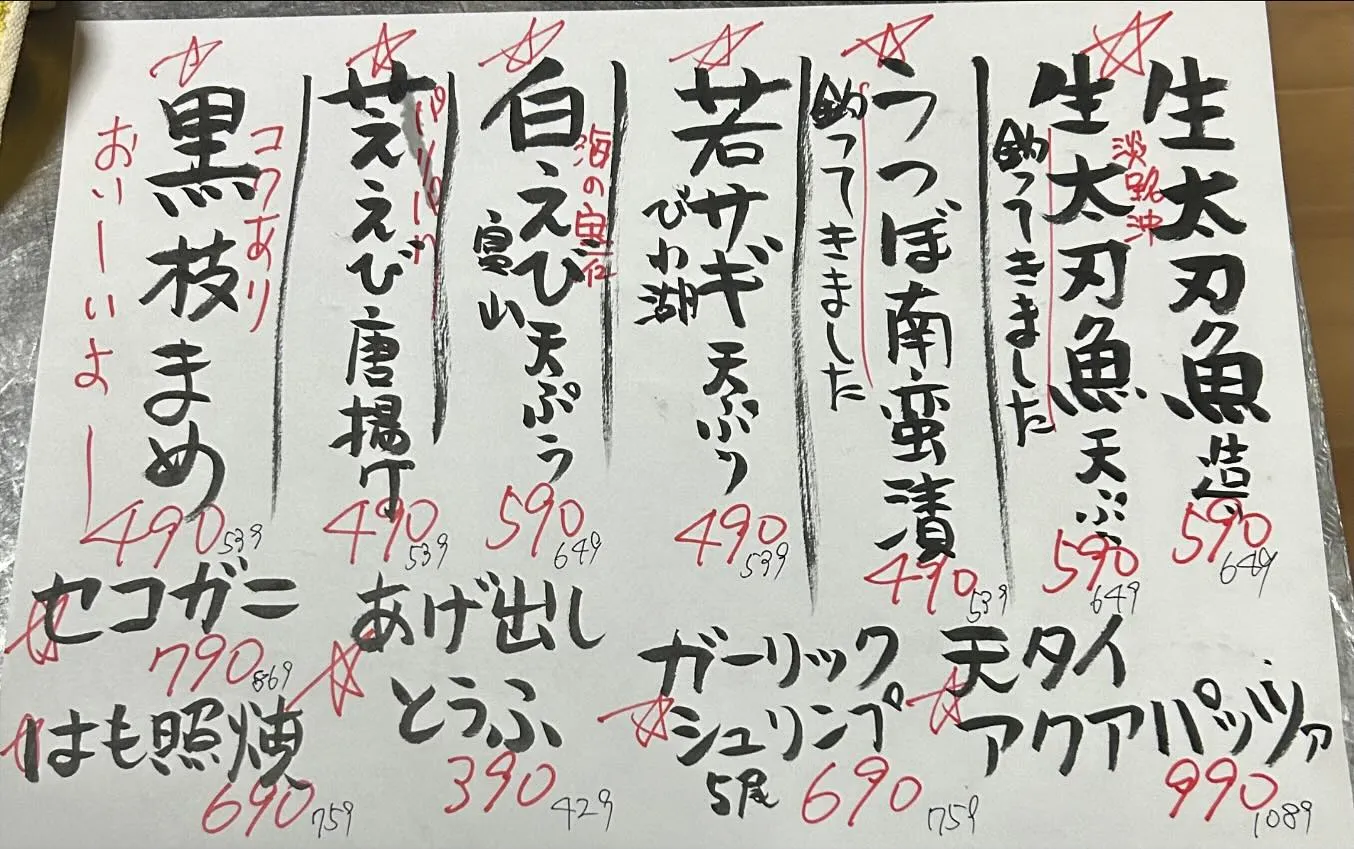 生太刃魚造り
590
649
淡路沖
生太刃魚天ぷら
釣ってきました
590
649
うつぼ南蛮漬
釣ってきました
490
539
若サギ天ぷら
びわ湖
490
539
海の宝石
白えび天ぷら
富山
590
649
パリパリ
芝えび唐揚げ
490
539
コクあり
黒枝まめ
おいーいよー
490
539
天タイ
アクアパッツァ
990
1089
ガーリック
シュリンプ
5尾
690
759
あげ出し
とうふ
390
429
セコガニ
790
869
はも照焼
690
759